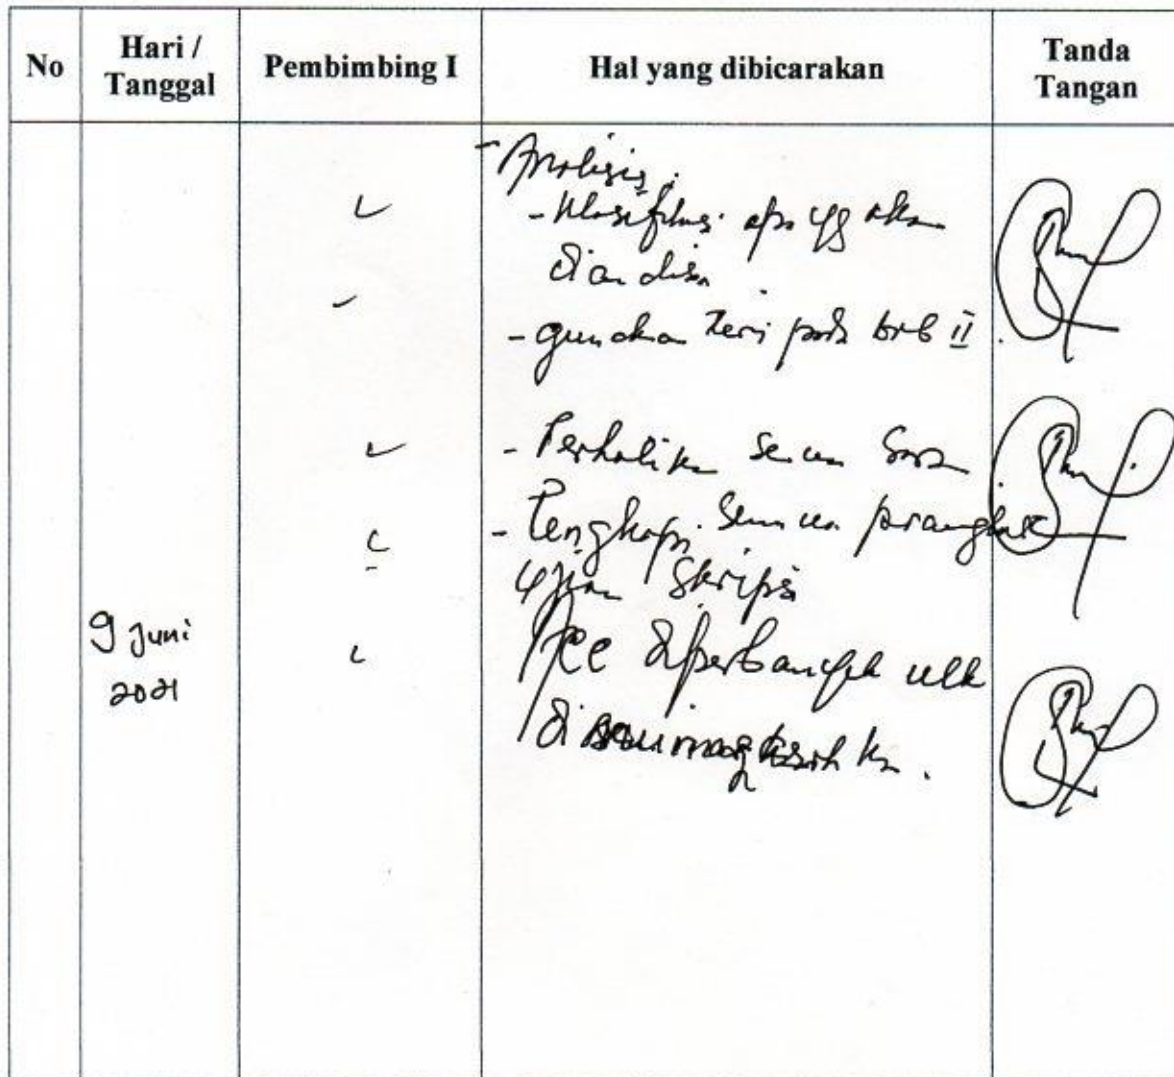 No
Hari / Tanggal
Pembimbing I
Hal yang dibicarakan
Tanda Tangan
- Analisis:
- Klasifikasi apa yg akan
dianalisa
- gunakan teori pada bab II
- Perhatikan semua
- Lengkapi semua prangkat
ujian Skripsi
9 Juni
2021
Acc diperbanyak utk